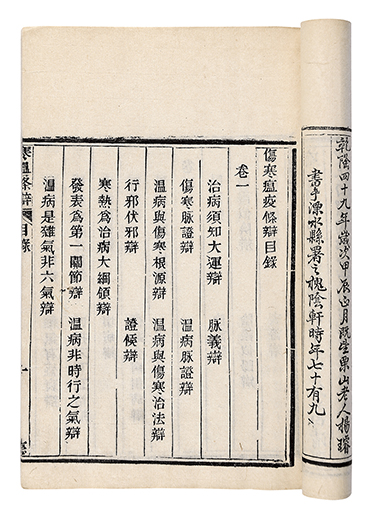 乾隆四十九年歲次甲辰正月既望栗山老人楊璿
書于溧水縣署之槐陰軒時年七十有九
傷寒瘟疫條辯目錄
卷一
治病須知大運辯 脉義辯
傷寒脉證辯 温病脉證辯
温病與傷寒根源辯 温病與傷寒治法辯
行邪伏邪辯 證候辯
寒熱爲治病大綱領辯
發表爲第一關節辯 温病非時行之氣辯
温病是雜氣非六氣辯
寒温條辯 目錄 一